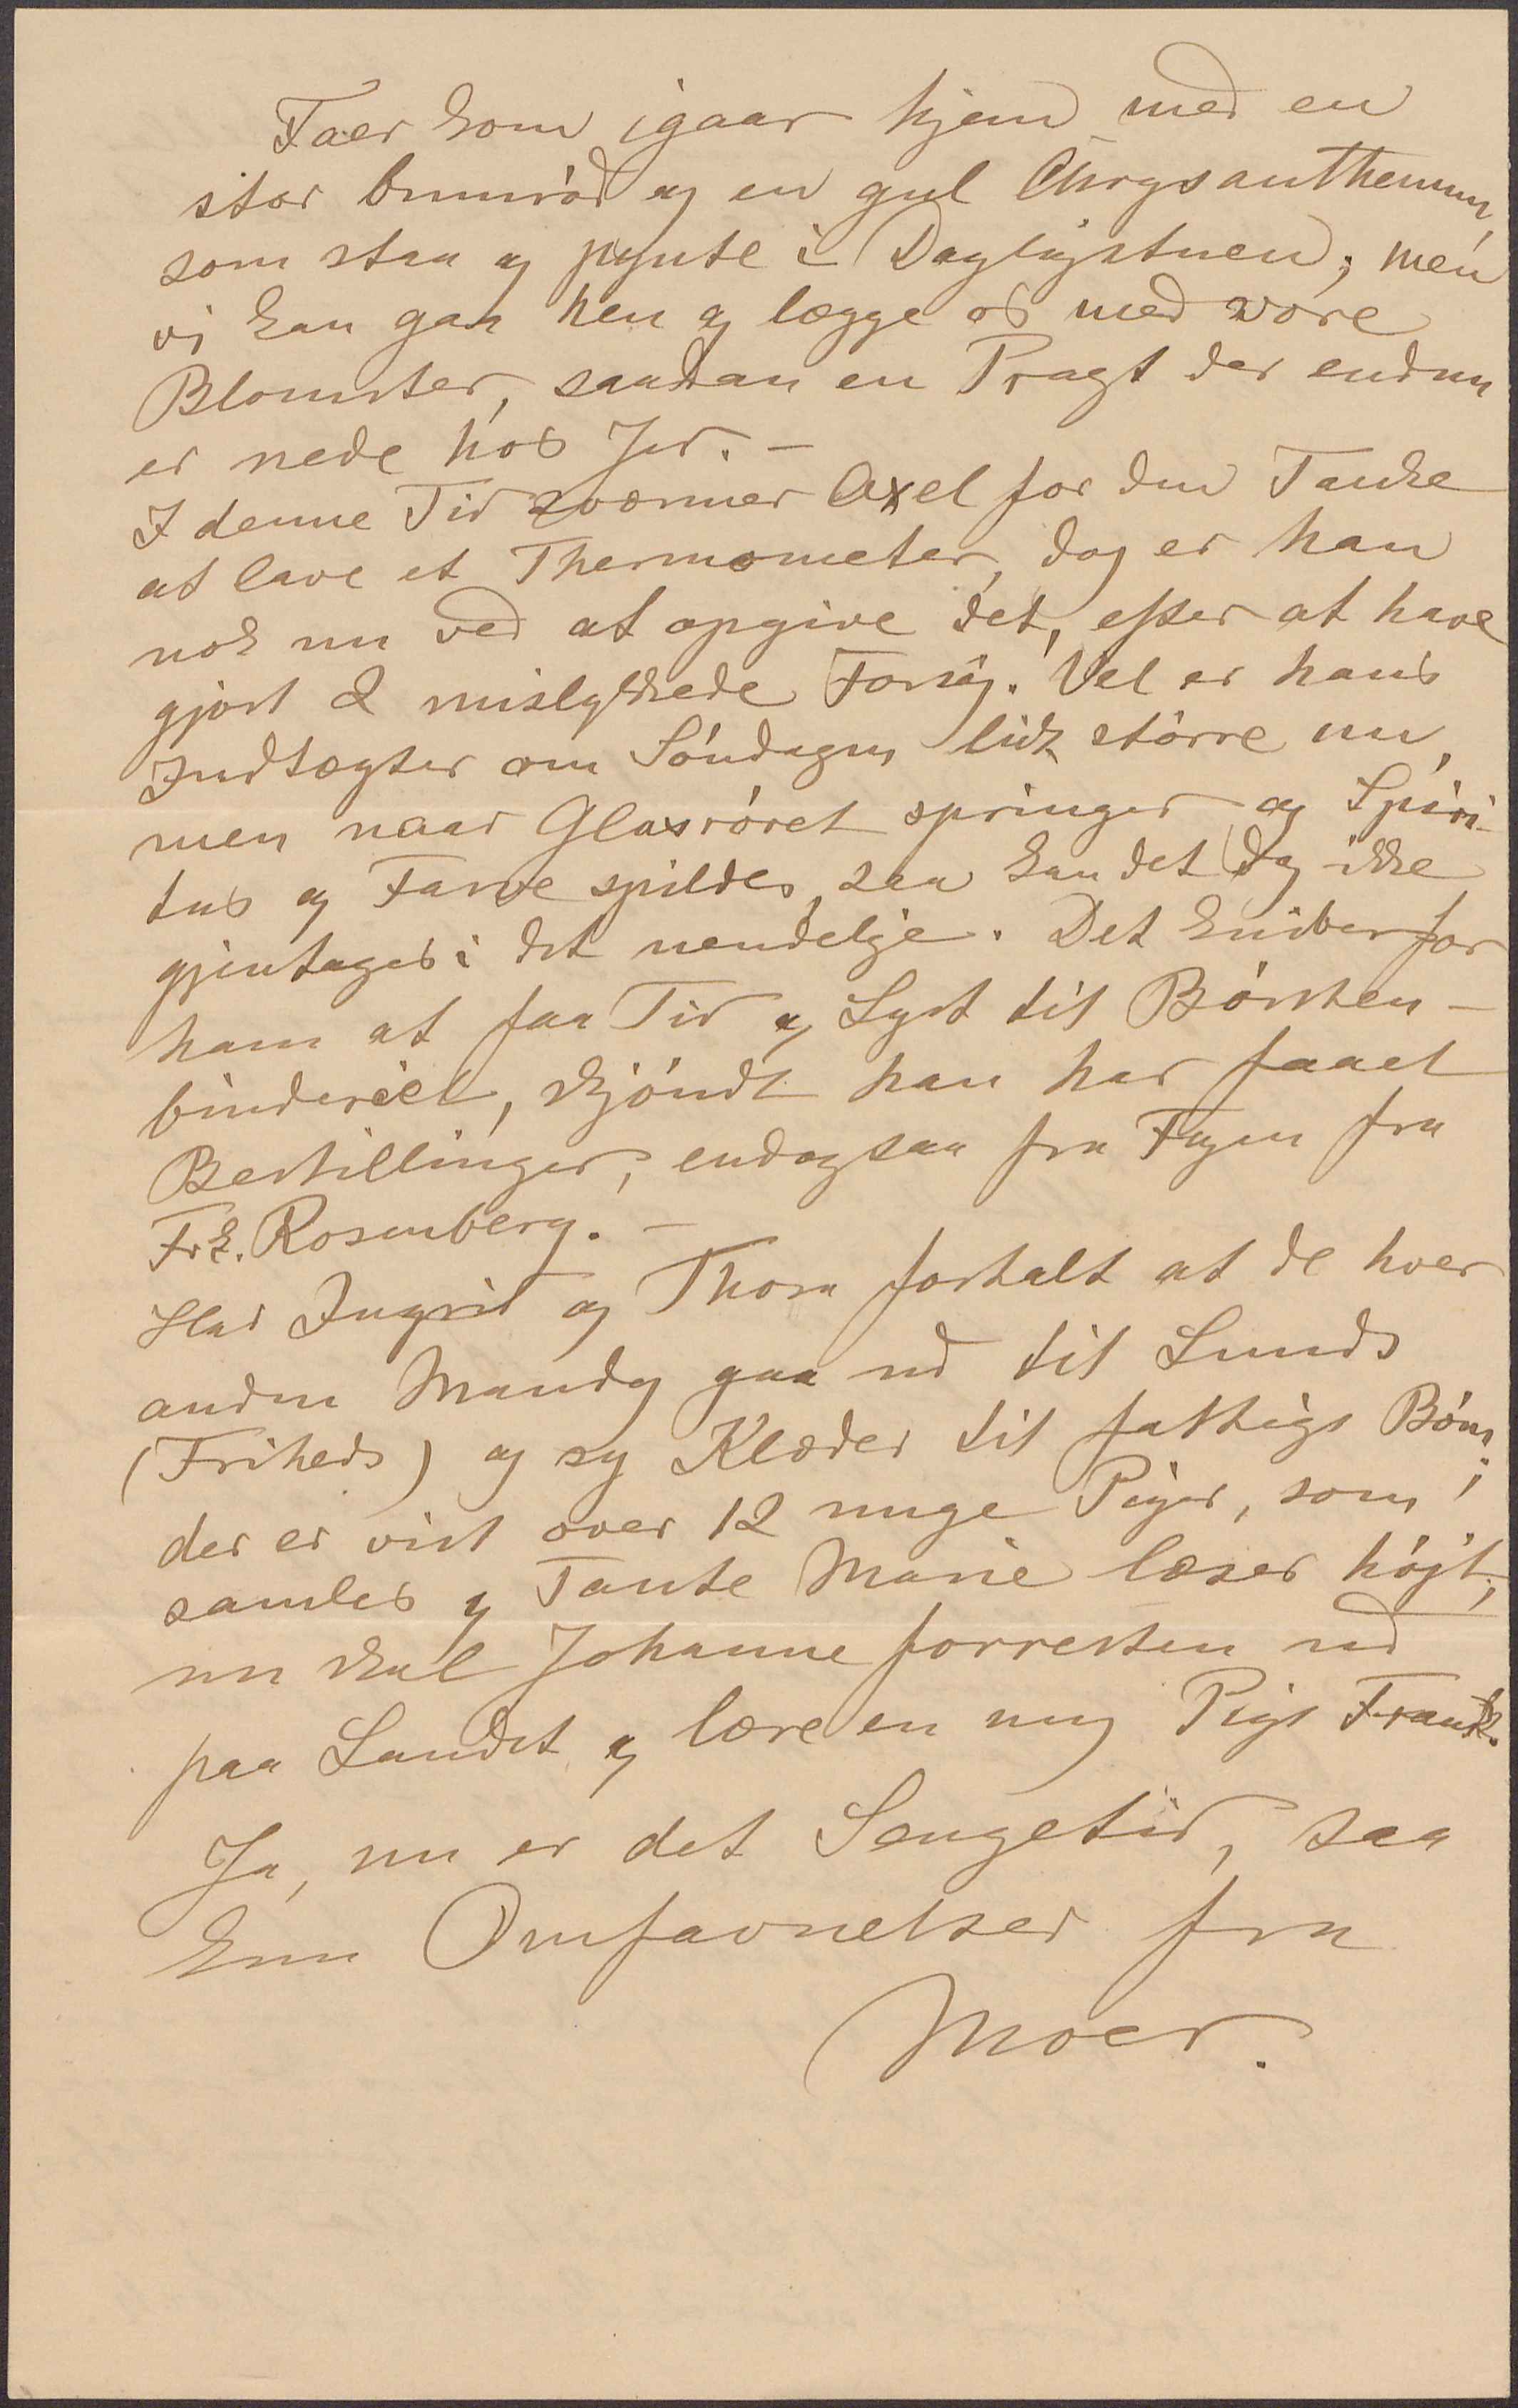 Faer kom igaar hjem med en
stor brunrød og en gul Chrysanthemum,
som staa og pynte i Dagligstuen; men
vi kan gaa hen og lægge os med vore
Blomster, saadan en Pragt der endnu
er nede hos Jer. –
I denne Tid sværmer Axel for den Tanke
at lave et Thermometer, dog er han
nok nu ved at opgive det, efter at have
gjort 2 mislykkede Forsøg. Vel er hans
Indtægter om Søndagen lidt større nu,
men naar Glasrøret springer og Spiri-
tus og Farve spildes, saa kan det dog ikke
gjentages i det uendelige. Det kniber for
ham at faa Tid og Lyst til Børsten-
binderiet, skjøndt han har faaet
Bestillinger, endogsaa fra Fyen fra
Frk. Rosenberg. –
Har Ingrid og Thora fortalt at de hver
anden Mandag gaa ud til Lunds
(Friheds) og sy Klæder til fattige Børn;
der er vist over 12 unge Piger, som
samles og Tante Marie læser højt;
nu skal Johanne forresten ud
paa Landet og lære en ung Pige Fransk.
Ja, nu er det Sengetid, saa
kun Omfavnelser fra
Moer.